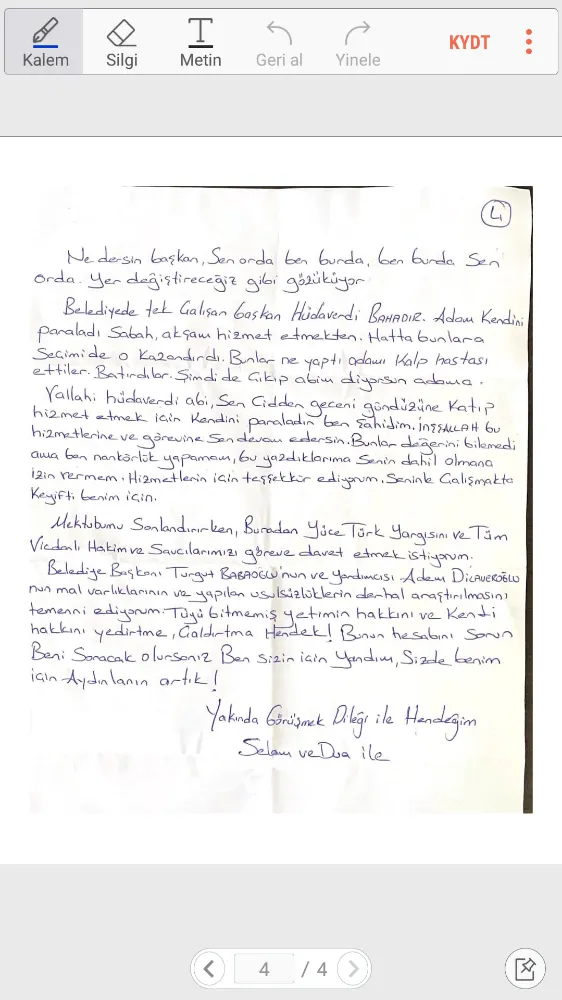 Kalem Silgi Metin Geri al Yinele KYDT
4
Ne dersin başkan, Sen orda ben burda, ben burda Sen
orda. Yer değiştireceğiz gibi gözüküyor
Belediyede tek Çalışan başkan Hüdaverdi BAHADIR. Adam Kendini
paraladı Sabah, akşam hizmet etmekten. Hatta bunlara
Seçimi de o Kazandırdı. Bunlar ne yaptı adamı Kalp hastası
ettiler. Batırdılar. Şimdi de Çıkıp abim diyorsun adama.
Vallahi hüdaverdi abi, Sen Cidden geceni gündüzüne Katıp
hizmet etmek için Kendini paraladın ben Şahidim. İNŞALLAH bu
hizmetlerine ve görevine Sen devam edersin. Bunlar değerini bilemedi
ama ben nankörlük yapamam, bu yazdıklarıma Senin dahil olmana
izin vermem. Hizmetlerin için teşşekkür ediyorum. Seninle Çalışmakta
Keyifti benim için.
Mektubumu Sonlandırırken, Buradan Yüce Türk Yargısını ve Tüm
Vicdanlı Hakim ve Savcılarımızı göreve davet etmek istiyorum.
Belediye Başkanı Turgut BABAOĞLU'nun ve Yardımcısı Adem DİLAVEROĞLU
nun mal varlıklarının ve yapılan usulsüzlüklerin derhal araştırılmasını
temenni ediyorum. Tüyü bitmemiş yetimin hakkını ve Kendi
hakkını yedirtme, Çaldırtma Hendek! Bunun hesabını Sorun
Beni Soracak olursanız Ben Sizin için Yandım, Sizde benim
için Aydınlanın artık!
Yakında Görüşmek Dileği ile Hendeğim
Selam ve Dua ile
4 / 4